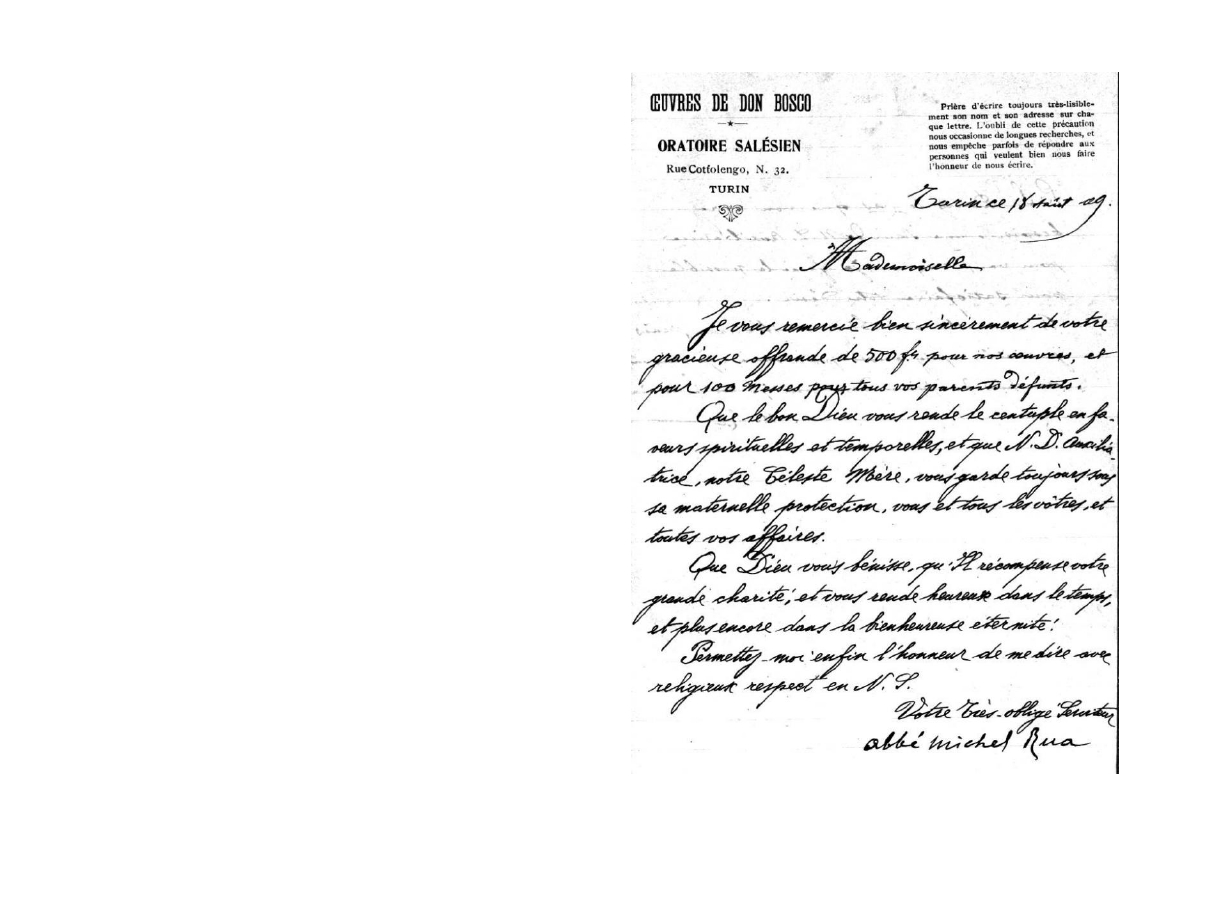 ŒUVRES DE DON BOSCO
ORATOIRE SALÉSIEN
Rue Cottolengo, N. 32.
TURIN
Prière d'écrire toujours très-lisible-
ment son nom et son adresse sur cha-
que lettre. L'oubli de cette précaution
nous occasionne de longues recherches, et
nous empêche parfois de répondre aux
personnes qui veulent bien nous faire
l'honneur de nous écrire.
Turin ce 18 Août 09.
Mademoiselle
Je vous remercie bien sincèrement de votre
gracieuse offrande de 500 frs. pour nos œuvres, et
pour 100 Messes pour tous vos parents défunts.
Que le bon Dieu vous rende le centuple en fa-
veurs spirituelles et temporelles, et que N. D. Auxilia-
trice, notre Céleste Mère, vous garde toujours sous
sa maternelle protection, vous et tous les vôtres, et
toutes vos affaires.
Que Dieu vous bénisse, qu'Il récompense votre
grande charité, et vous rende heureux dans le temps,
et plus encore dans la bienheureuse éternité!
Permettez-moi enfin l'honneur de me dire avec
religieux respect en N. S.
Votre Très-obligé Serviteur
abbé Michel Rua